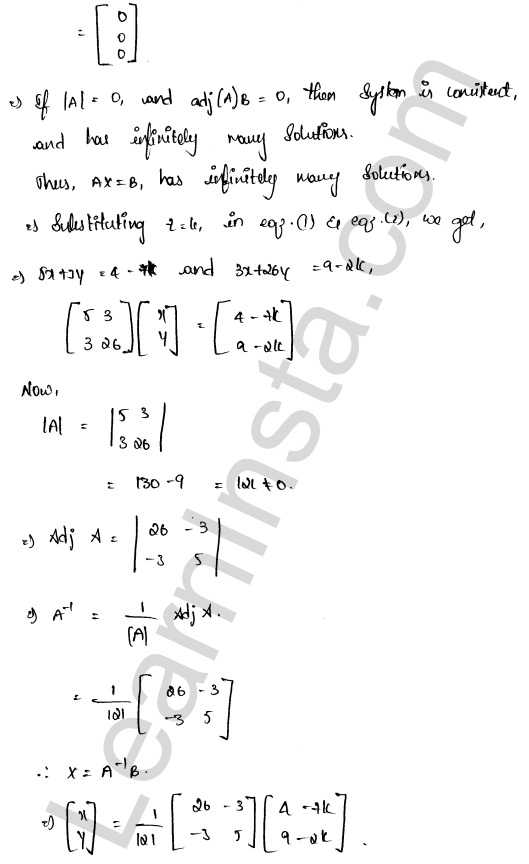 = [0
0
0]
⇒ If |A| = 0, and adj(A)B = 0, then System is consistent,
and has infinitely many Solutions.
Thus, AX = B, has infinitely many Solutions.
⇒ Substituting z = k, in eq. (1) & eq. (2), we get,
⇒ 5x + 3y = 4 - 7k and 3x + 26y = 9 - 2k,
[5 3
3 26] [x
y] = [4 - 7k
9 - 2k]
Now,
|A| = |5 3
3 26|
= 130 - 9 = 121 ≠ 0.
⇒ Adj A = |26 -3
-3 5|
⇒ A⁻¹ = 1/|A| Adj A.
= 1/121 [26 -3
-3 5]
∴ X = A⁻¹B.
⇒ [x
y] = 1/121 [26 -3
-3 5] [4 - 7k
9 - 2k].
LearnInsta.com